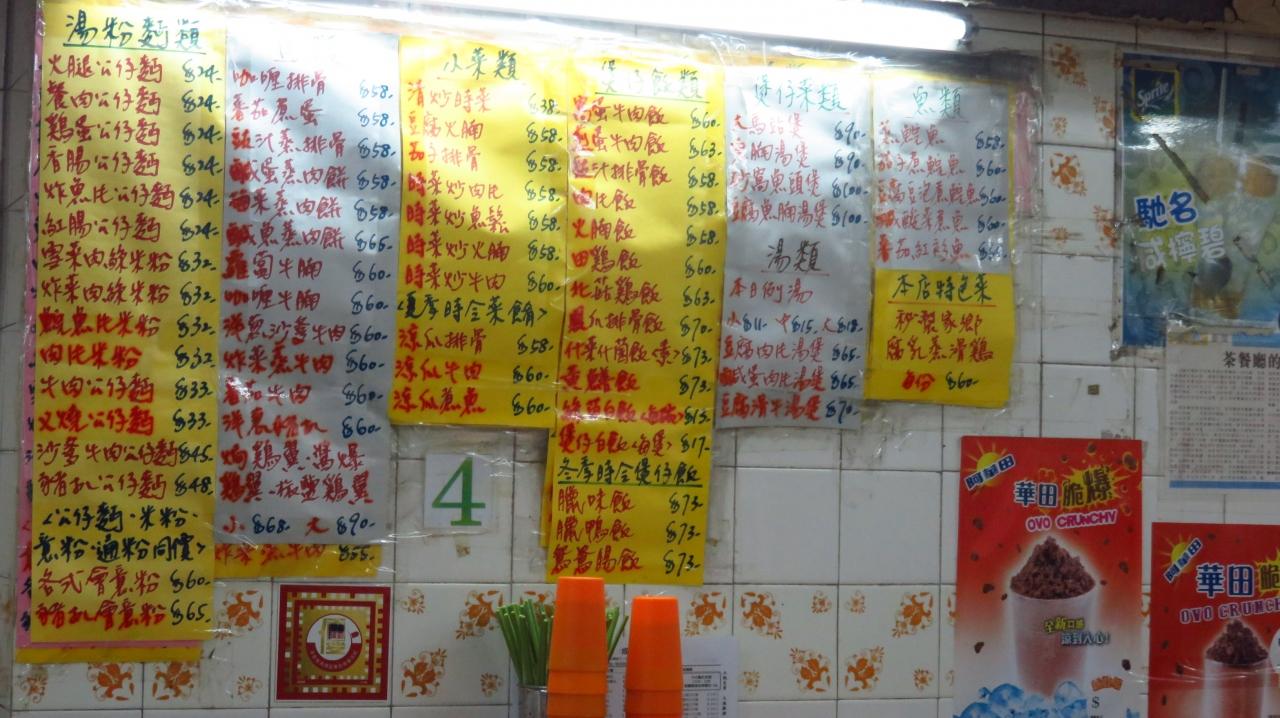 湯粉麵類
火腿公仔麵 $24-
餐肉公仔麵 $24-
鷄蛋公仔麵 $24-
香腸公仔麵 $24-
炸魚片公仔麵 $24-
紅腸公仔麵 $24-
雪菜肉絲米粉 $32-
炸菜肉絲米粉 $32-
鯇魚片米粉 $32-
肉片米粉 $32
牛肉公仔麵 $33-
叉燒公仔麵 $33-
沙爹牛肉公仔麵 $45-
豬扒公仔麵 $48-
<公仔麵·米粉·
意粉·通粉同價>
各式會意粉 $60-
豬扒會意粉 $65-
咖喱排骨 $58-
番茄煮蛋 $58-
豉汁蒸排骨 $58-
鹹蛋蒸肉餅 $58-
蒸肉餅 $58-
鹹魚蒸肉餅 $65-
蘿蔔牛腩 $60-
咖喱牛腩 $60-
洋葱沙爹牛肉 $60-
炸菜蒸牛肉 $60-
番茄牛肉 $60-
洋葱豬扒 $60-
焗鷄翼·
鷄翼·椒鹽鷄翼
小 $68- 大 $90-
炸菜蒸牛肉 $55-
小菜類
清炒時菜 $38-
豆腐火腩 $58-
茄子排骨 $58-
時菜炒肉片 $58-
時菜炒魚鬆 $58-
時菜炒火腩 $58-
時菜炒牛肉 $60-
<夏季時令菜餚>
涼瓜排骨 $58-
涼瓜牛肉 $60-
涼瓜煮魚 $60-
煲仔飯類
窩蛋牛肉飯 $60-
蛋牛肉飯 $63-
豉汁排骨飯 $58-
肉片飯 $58-
火腩飯 $58-
田鷄飯 $60-
北菇鷄飯 $63-
鳳爪排骨飯 $70-
什菜什菌飯 $73-
黃鱔飯 $73-
白飯 $15-
煲仔白飯<每煲> $17-
冬季時令煲仔飯
臘味飯 $73-
臘鴨飯 $73-
鴛鴦腸飯 $73-
煲仔菜類
大馬站煲 $90-
腩湯煲 $90-
砂窩魚頭煲 $100-
豆腐魚腩湯煲 $100-
湯類
本日例湯
小$11- 中$15- 大$18-
豆腐肉片湯煲 $65-
鹹蛋肉片湯煲 $65-
豆腐滑牛湯煲 $70-
魚類
蒸鯇魚 $58-
茄子煮鯇魚 $60-
豆腐豆泡煮鯇魚 $60-
鹹酸菜煮魚 $60-
番茄紅衫魚
本店特色菜
秘製家鄉
腐乳蒸滑鷄
每份 $60-
4
Sprite
馳名
咸檸碧
茶餐廳的
阿華田
華田脆爆
OVO CRUNCHY
全新口感
涼到入心!
$
阿華田
華田脆
OVO CRUNC